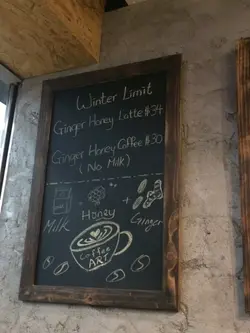 Winter Limit
Ginger Honey Latte $34
Ginger Honey Coffee $30
( No Milk )
Milk
Honey
Ginger
Coffee
ART